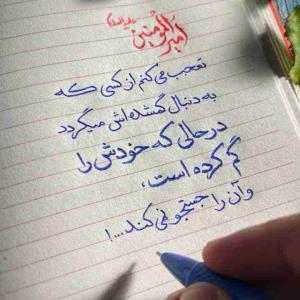 امیرالمؤمنین علیه‌السلام
تعجب می‌کنم از کسی که
به دنبال گمشده‌اش میگردد
در حالی که خودش را
گم کرده است،
و آن را جستجو نمی‌کند...!